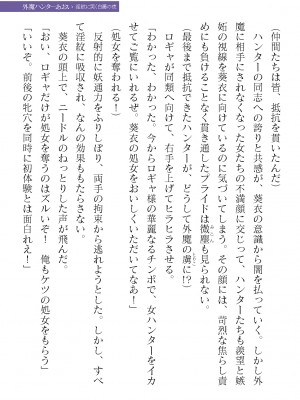 外魔ハンターあおい 陰紋に哭く白濁の虜
「仲間たちは皆、抵抗を貫いたんだ」
ハンターの同志への誇りと共感が、葵衣の意識から闇を払っていく。しかし外
魔に相手にされなくなった女たちの不満顔に交じって、ハンターたちも羨望と嫉
妬の視線を葵衣に向けているのに気づいてしまう。その顔には、苛烈な焦らし責
めにも負けることなく貫き通したプライドは微塵も見られない。
「最後まで抵抗できたハンターが、どうして外魔の虜に!?」
ロギャが同類へ向けて、右手を上げてヒラヒラさせる。
「わかった、わかった。今からロギャ様の華麗なるチンポで、女ハンターをイカ
せてご覧にいれるぜ。葵衣の処女をおいしくいただいてなあ！」
「処女を奪われる！」
反射的に妖通力をふりしぼり、両手の拘束から逃れようとした。しかし、すべ
て淫紋に吸収され、なんの効果ももたらさない。
葵衣の頭上で、ニードルのねっとりした声が飛んだ。
「おい、ロギャだけが処女を奪うのはズルいぞ！　俺もケツの処女をもらう」
「いいぞ。前後の牝穴を同時に初体験とは面白れえ！」